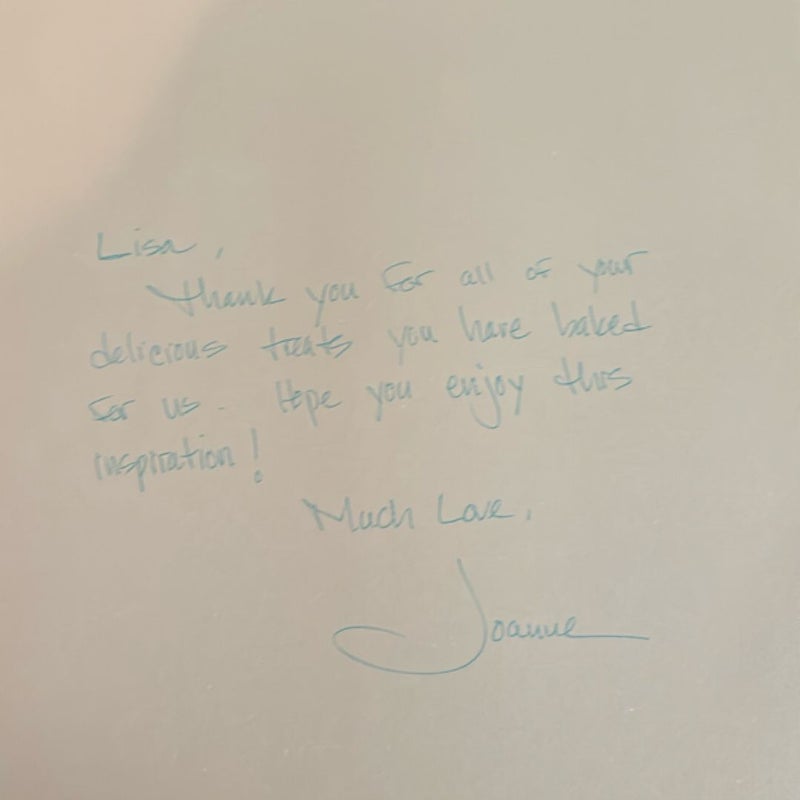 Lisa,
Thank you for all of your
delicious treats you have baked
for us. Hope you enjoy this
inspiration!
Much Love,
Joanne